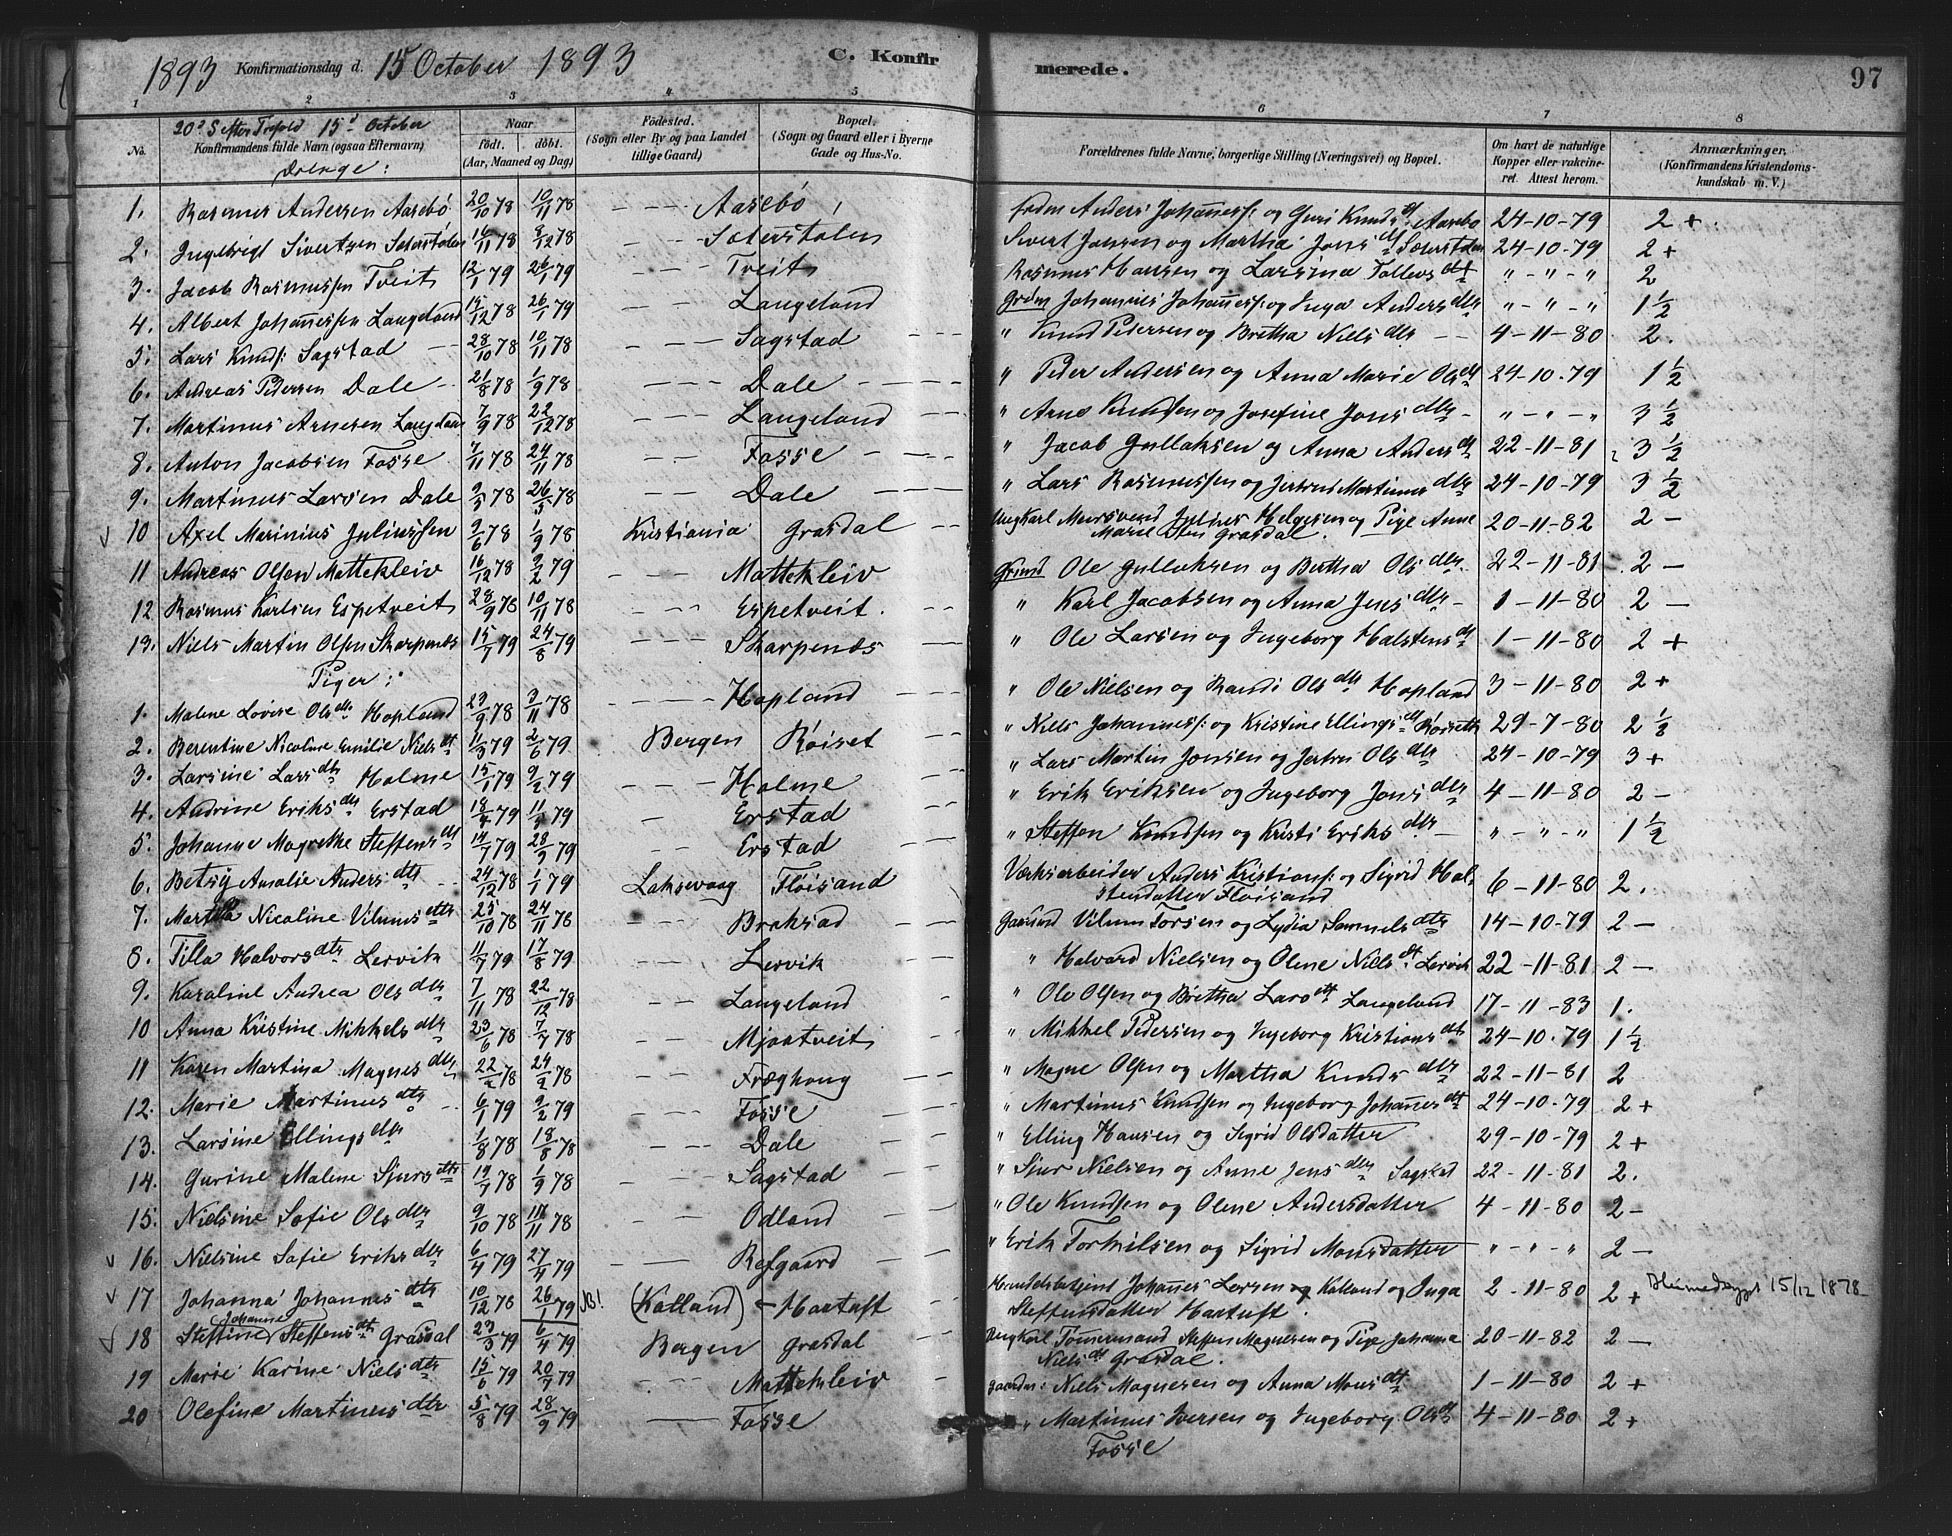 1893 Konfirmationsdag d. 15 October 1893 C. Konfirmerede. 97
1 2 3 4 5 6 7 8
No.
20d S efter Trefold 15d October
Konfirmandens fulde Navn (ogsaa Efternavn)
Drenge:
Naar
født. døbt.
(Aar, Maaned og Dag)
Fødested.
(Sogn eller By og paa Landet
tillige Gaard)
Bopæl.
(Sogn og Gaard eller i Byerne
Gade og Hus-No.
Forældrenes fulde Navne, borgerlige Stilling (Næringsvei) og Bopæl.
Om havt de naturlige
Kopper eller vakcine-
ret. Attest herom.
Anmærkninger.
(Konfirmandens Kristendoms-
kundskab m. V.)
1. Rasmus Andersen Aasebø 20/10 78 10/11 78 - - - Aasebø Anders Johannes: og Guri Knuds dt Aasebø 24-10-79 2+
2. Ingebrigt Sivertsen Sæterstølen 16/11 78 8/12 78 - - Sæterstølen Sivert Jonsen og Martha Jons dt Sæterstølen 24-10-79 2+
3. Jacob Rasmussen Tveit 12/1 79 26/1 79 - - Tveit Rasmus Hansen og Larsina Tollevs dt " - " - " 2
4. Albert Johannessen Langeland 15/12 78 26/1 79 - - - Langeland Grdm Johannes Johannes: og Inga Anders dtr " - " - " 1 1/2
5. Lars Knuds: Sagstad 28/10 78 10/11 78 - - - Sagstad " Knud Pedersen og Bretha Niels dtr 4-11-80 2.
6. Andreas Pedersen Dale 21/8 78 1/9 78 - - - Dale " Peder Andersen og Anna Marie Ols dt 24-10-79 1 1/2
7. Martinus Arnesen Langeland 7/9 78 22/12 78 - - - Langeland " Arne Knudsen og Josefine Jons dtr " - " - " 3 1/2
8. Anton Jacobsen Fosse 7/11 78 24/11 78 - - Fosse " Jacob Gullaksen og Anna Anders dt 22-11-81 3 1/2
9. Martinus Larsen Dale 9/5 78 26/5 78 - - Dale " Lars Rasmussen og Jertrud Martinus dtr 24-10-79 3 1/2
10 Axel Marinius Juliussen 9/6 78 1/9 78 Kristiania Grasdal Ungkarl Murssvend Julius Helgesen og Pige Anne
Marie Grasdal. 20-11-82 2 -
11 Andreas Olsen Mattekleiv 16/12 78 9/2 79 - - - Mattekleiv Grdmd Ole Gullaksen og Bertha Ols dtr 22-11-81 2 -
12. Rasmus Karlsen Espetveit 28/9 78 10/11 78 - - - Espetveit. " Karl Jacobsen og Anna Jens dtr 1-11-80 2 -
13. Niels Martin Olsen Skarpenæs 15/7 79 24/8 79 - - - Skarpenæs " Ole Larsen og Ingeborg Halstens dt 1-11-80 2 +
Piger:
1. Malene Lovise Ols dtr Hopland 23/9 78 3/11 78 - - - Hopland " Ole Nielsen og Randi Ols dtr Hopland 3-11-80 2+
2. Berentine Nicoline Emilie Niels dt 11/3 79 2/6 79 Bergen Røiset " Niels Johannes: og Kristine Ellings dt 29-7-80
3. Larsine Lars dtr Holme 15/1 79 9/2 79 - - Holme " Lars Martin Jonsen og Jertru Ols dtr 24-10-79 3+
4. Andrine Eriks dtr Erstad 79 79 - Erstad " Erik Eriksen og Ingeborg Jons dtr 4-11-80 2 -
5. Johanne Magrethe Steffens dt 14/7 79 28/9 79 - - Erstad " Steffen Knudsen og Kristi Eriks dtr " - " - " 1 1/2
6. Betsy Amalie Anders dtr 24/12 78 1/1 79 Laksevaag Fløisand Værksarbeider Anders Kristians: og Sigrid Hal-
stendatter Fløisand 6-11-80 2.
7. Martha Nicoline Vilums dtr 25/10 78 24/11 78 - - Braksad Gaardmd Vilum Torsen og Lydia Samuels dtr 14-10-79 2 -
8. Tilla Halvors dtr Lervik 11/7 79 17/8 79 - - Lervik " Halvard Nielsen og Olene Niels dt Lervik 22-11-81 2 -
9. Karoline Andrea Ols dtr 7/11 78 22/12 78 - - Langeland " Ole Olsen og Bretha Lars dtr Langeland 17-11-83 1.
10 Anna Kristine Mikkels dtr 23/6 78 7/7 78 - - Mjøstveit " Mikkel Pedersen og Ingeborg Kristians dt 24-10-79 1 1/2
11 Karen Martina Magnes dtr 78 78 - - Fræghoug " Magne Olsen og Martha Knuds dtr 22-11-81 2
12. Marie Martinus dtr 6/1 79 9/2 79 - - Fosse " Martinus Knudsen og Ingeborg Johannes dt 24-10-79 2+
13. Larsine Ellings dtr 1/8 78 18/8 78 - - Dale " Elling Hansen og Sigrid Olsdatter 29-10-79 2+
14. Gurine Malene Sjurs dtr 19/7 78 1/9 78 - - Sagstad " Sjur Nielsen og Anne Jens dtr Sagstad 22-11-81 2.
15. Nielsine Sofie Ols dtr 9/10 78 11 78 - - Odland " Ole Knudsen og Olene Andersdatter 4-11-80 2-
16. Nielsine Sofie Eriks dtr 6/4 79 27/4 79 - - Refgaard " Erik Torkilsen og Sigrid Monsdatter " - " - " 2 -
17 Johanna Johannes dtr 10/12 78 26/1 79 NB! (Kalland) - Hartuft Handelsbetjent Johannes Larsen Kalland og Inga
Steffensdatter Hartuft. 2-11-80 2 + Heimedøypt 15/12 1878
18 Steffine Johanne Steffens dt Grasdal 23/3 79 6/4 79 Bergen Grasdal Ungkarl Tømmermand Steffen Magnesen og Pige Johanna
Niels dt Grasdal. 20-11-82 2 -
19 Marie Karine Niels dtr 15/6 79 20/7 79 - - Mattekleiv gaardm: Niels Magnesen og Anna Mons dt 1-11-80 2 +
20 Olefine Martinus dtr 5/8 79 28/9 79 - - Fosse " Martinus Iversen og Ingeborg Ols dt
Fosse 4-11-80 2+